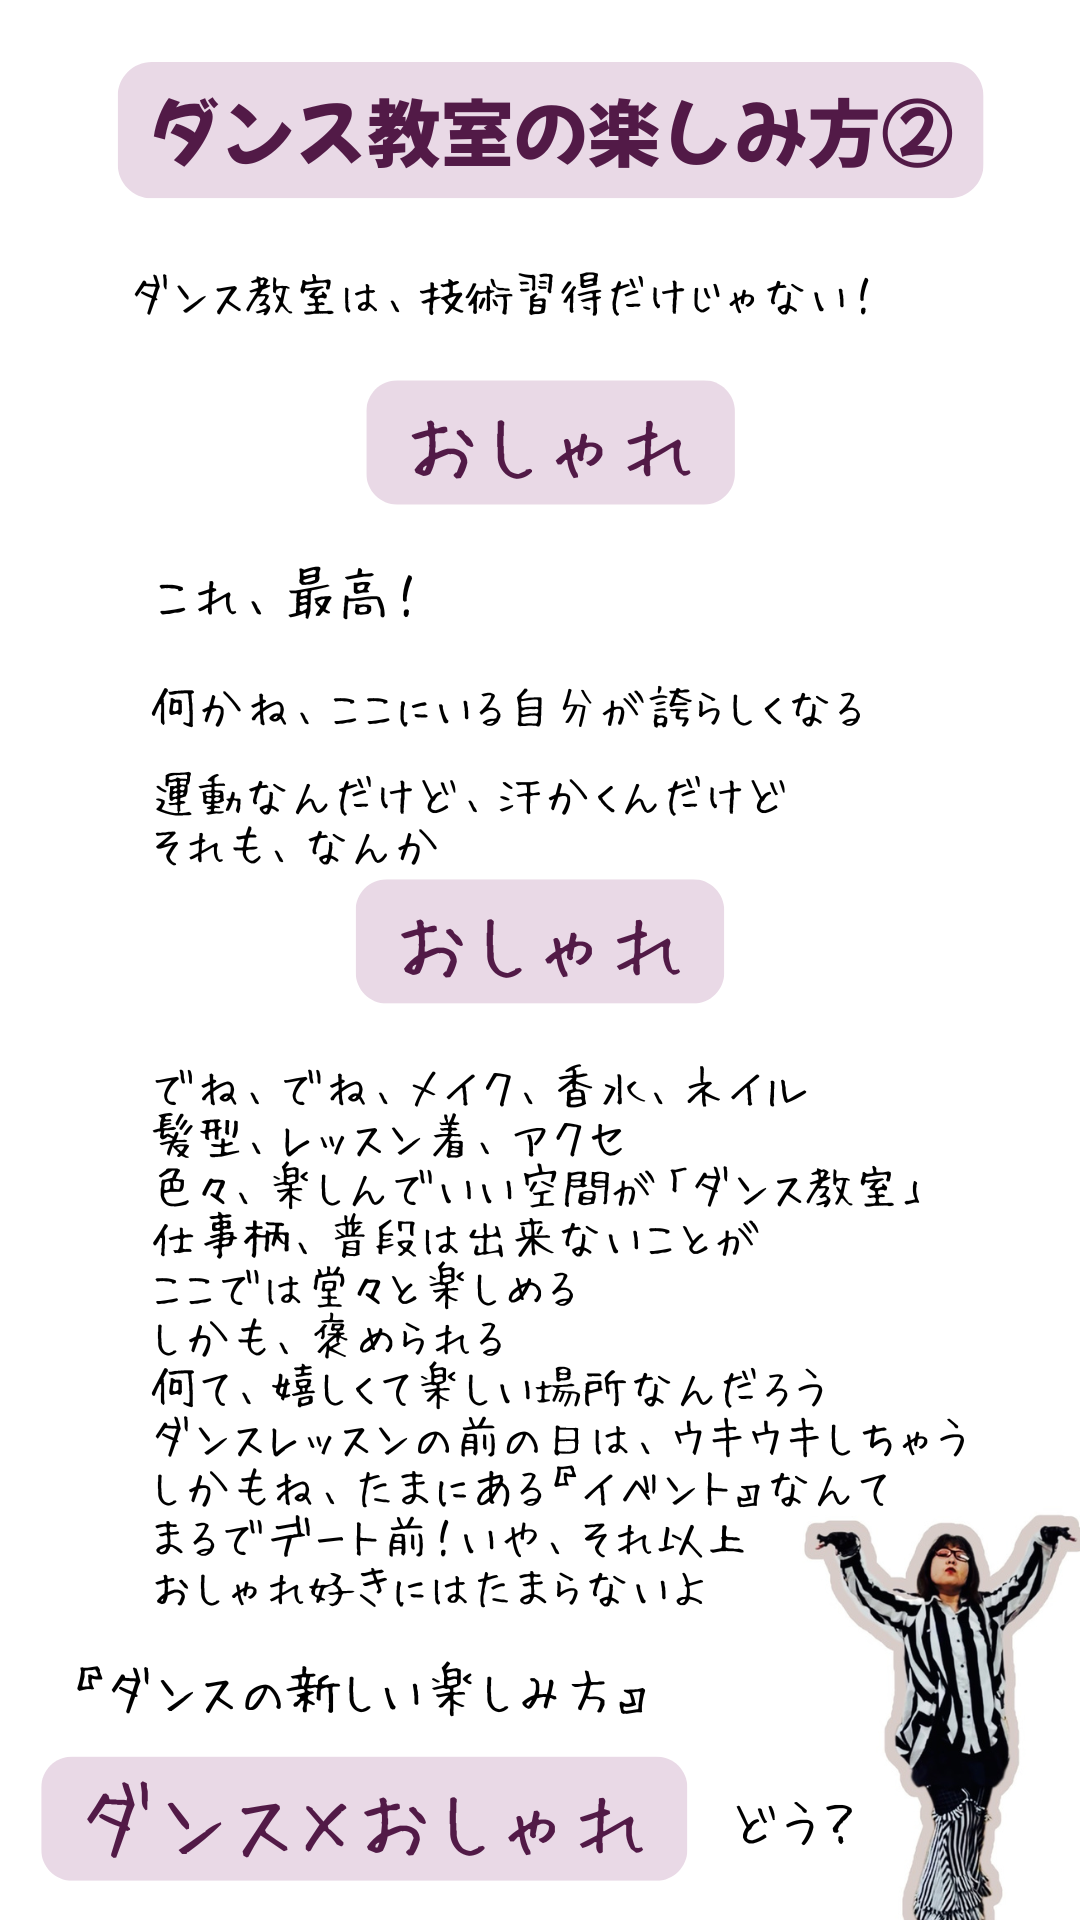 ダンス教室の楽しみ方②
ダンス教室は、技術習得だけじゃない！
おしゃれ
これ、最高！
何かね、ここにいる自分が誇らしくなる
運動なんだけど、汗かくんだけど
それも、なんか
おしゃれ
でね、でね、メイク、香水、ネイル
髪型、レッスン着、アクセ
色々、楽しんでいい空間が「ダンス教室」
仕事柄、普段は出来ないことが
ここでは堂々と楽しめる
しかも、褒められる
何て、嬉しくて楽しい場所なんだろう
ダンスレッスンの前の日は、ウキウキしちゃう
しかもね、たまにある『イベント』なんて
まるでデート前！いや、それ以上
おしゃれ好きにはたまらないよ
『ダンスの新しい楽しみ方』
ダンス×おしゃれ
どう？